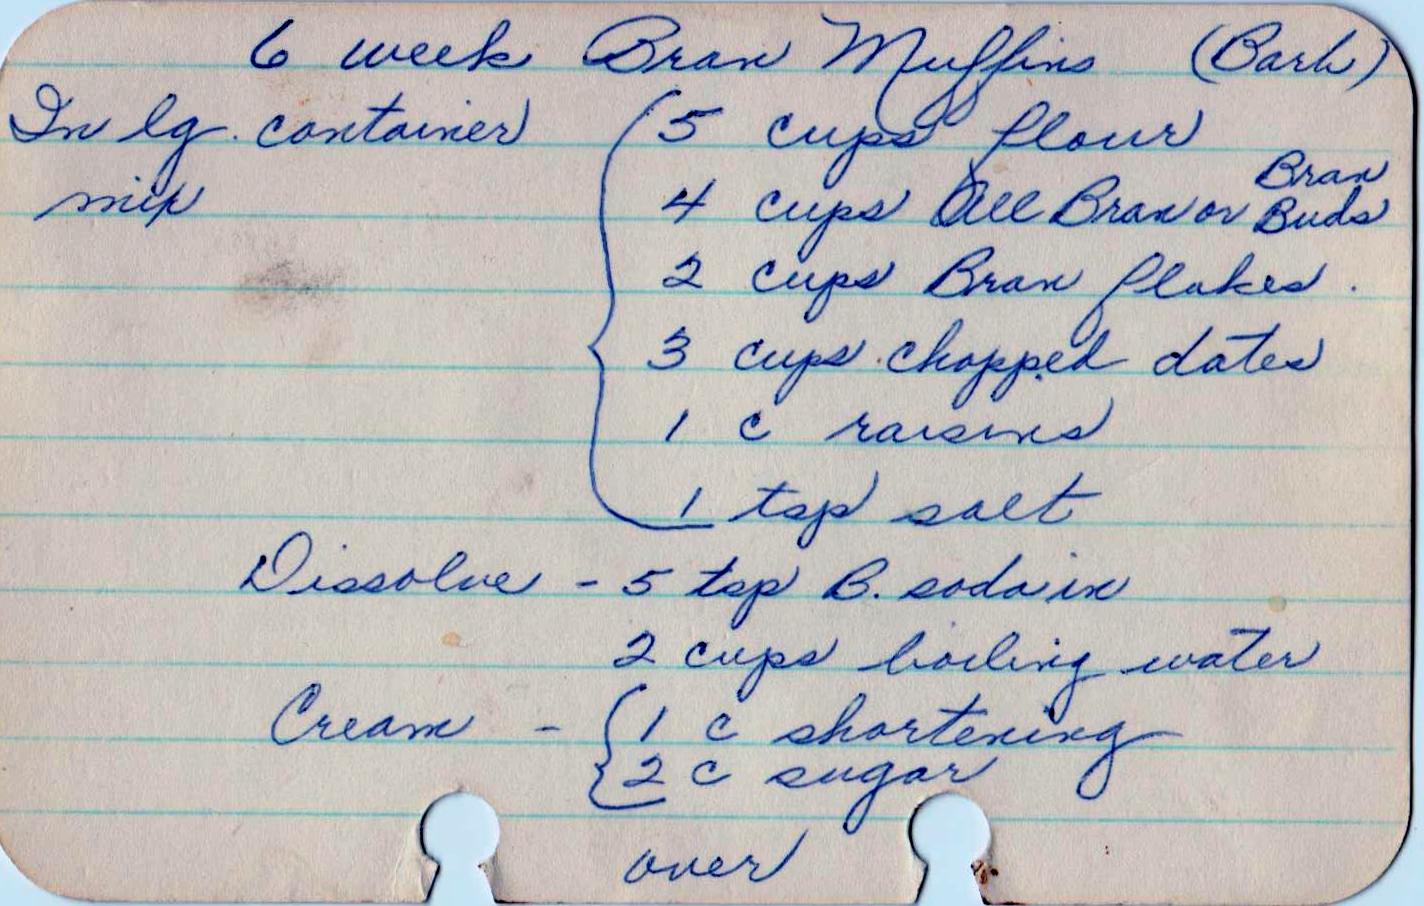 6 week Bran Muffins (Barb)
In lg. container
mix
5 cups flour
4 cups All Bran or Bran Buds
2 cups Bran flakes.
3 cups chopped dates
1 c raisins
1 tsp salt
Dissolve - 5 tsp B. soda in
2 cups boiling water
Cream - 1 c shortening
2 c sugar
over